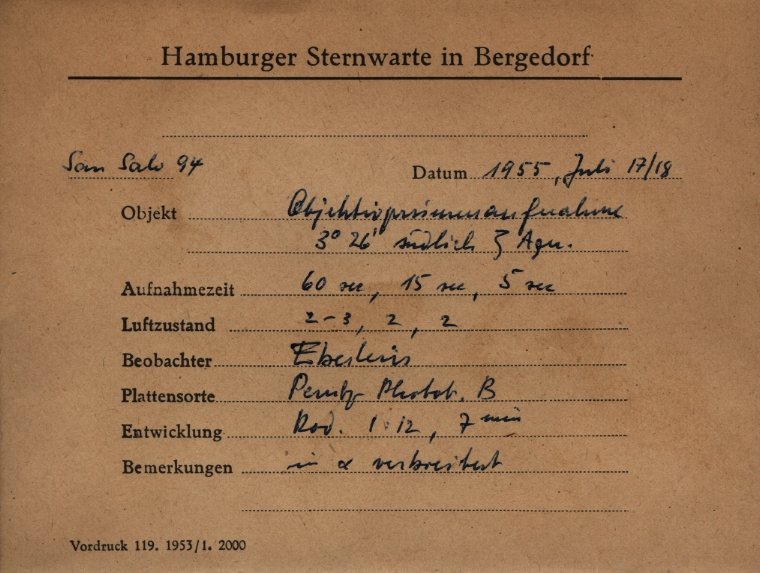 Hamburger Sternwarte in Bergedorf
San Salv 94 Datum 1955, Juli 17/18
Objekt Objektivprismenaufnahme
3° 26' südlich ζ Aqu.
Aufnahmezeit 60 sec, 15 sec, 5 sec
Luftzustand 2-3, 2, 2
Beobachter
Plattensorte Perutz B
Entwicklung Rod. 1:12, 7 min
Bemerkungen in α verbreitert
Vordruck 119. 1953/1. 2000